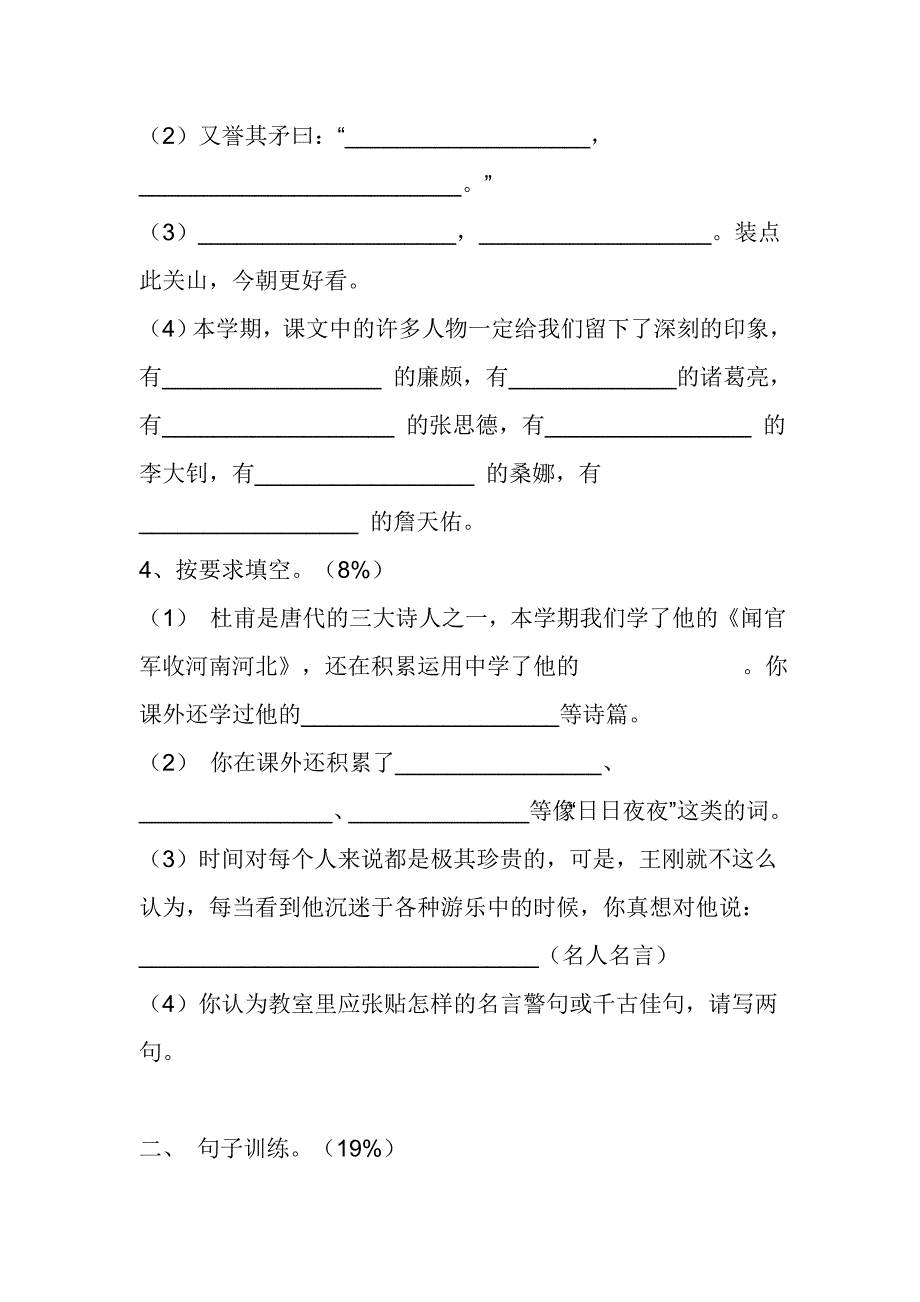 （2）又誉其矛曰：“___________________，
_________________________。”
（3）____________________，__________________。装点
此关山，今朝更好看。
（4）本学期，课文中的许多人物一定给我们留下了深刻的印象，
有_________________ 的廉颇，有_____________的诸葛亮，
有__________________ 的张思德，有________________ 的
李大钊，有_________________ 的桑娜，有
_________________ 的詹天佑。
4、按要求填空。（8%）
（1） 杜甫是唐代的三大诗人之一，本学期我们学了他的《闻官
军收河南河北》，还在积累运用中学了他的 。你
课外还学过他的____________________等诗篇。
（2） 你在课外还积累了________________、
_______________、______________等像“日日夜夜”这类的词。
（3）时间对每个人来说都是极其珍贵的，可是，王刚就不这么
认为，每当看到他沉迷于各种游乐中的时候，你真想对他说：
_______________________________（名人名言）
（4）你认为教室里应张贴怎样的名言警句或千古佳句，请写两
句。
二、 句子训练。（19%）